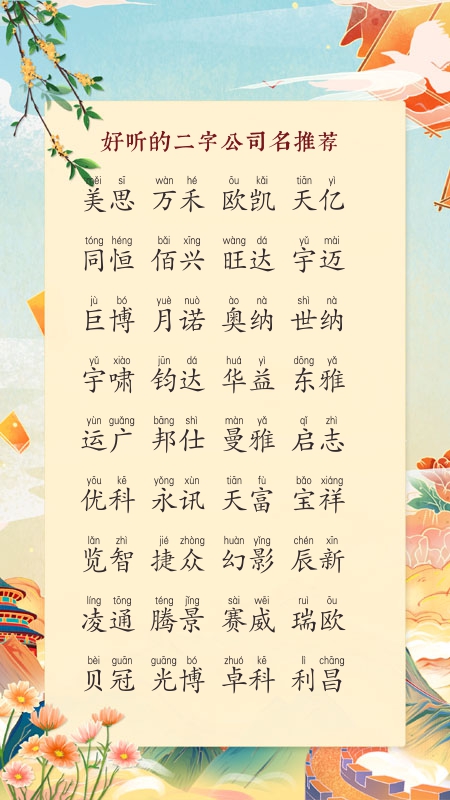 好听的二字公司名推荐
měi sī wàn hé ōu kǎi tiān yì
美思 万禾 欧凯 天亿
tóng héng bǎi xīng wàng dá yǔ mài
同恒 佰兴 旺达 宇迈
jù bó yuè nuò ào nà shì nà
巨博 月诺 奥纳 世纳
yǔ xiào jūn dá huá yì dōng yǎ
宇啸 钧达 华益 东雅
yùn guǎng bāng shì màn yǎ qǐ zhì
运广 邦仕 曼雅 启志
yōu kē yǒng xùn tiān fù bǎo xiáng
优科 永讯 天富 宝祥
lǎn zhì jié zhòng huàn yǐng chén xīn
览智 捷众 幻影 辰新
líng tōng téng jǐng sài wēi ruì ōu
凌通 腾景 赛威 瑞欧
bèi guān guāng bó zhuó kē lì chāng
贝冠 光博 卓科 利昌